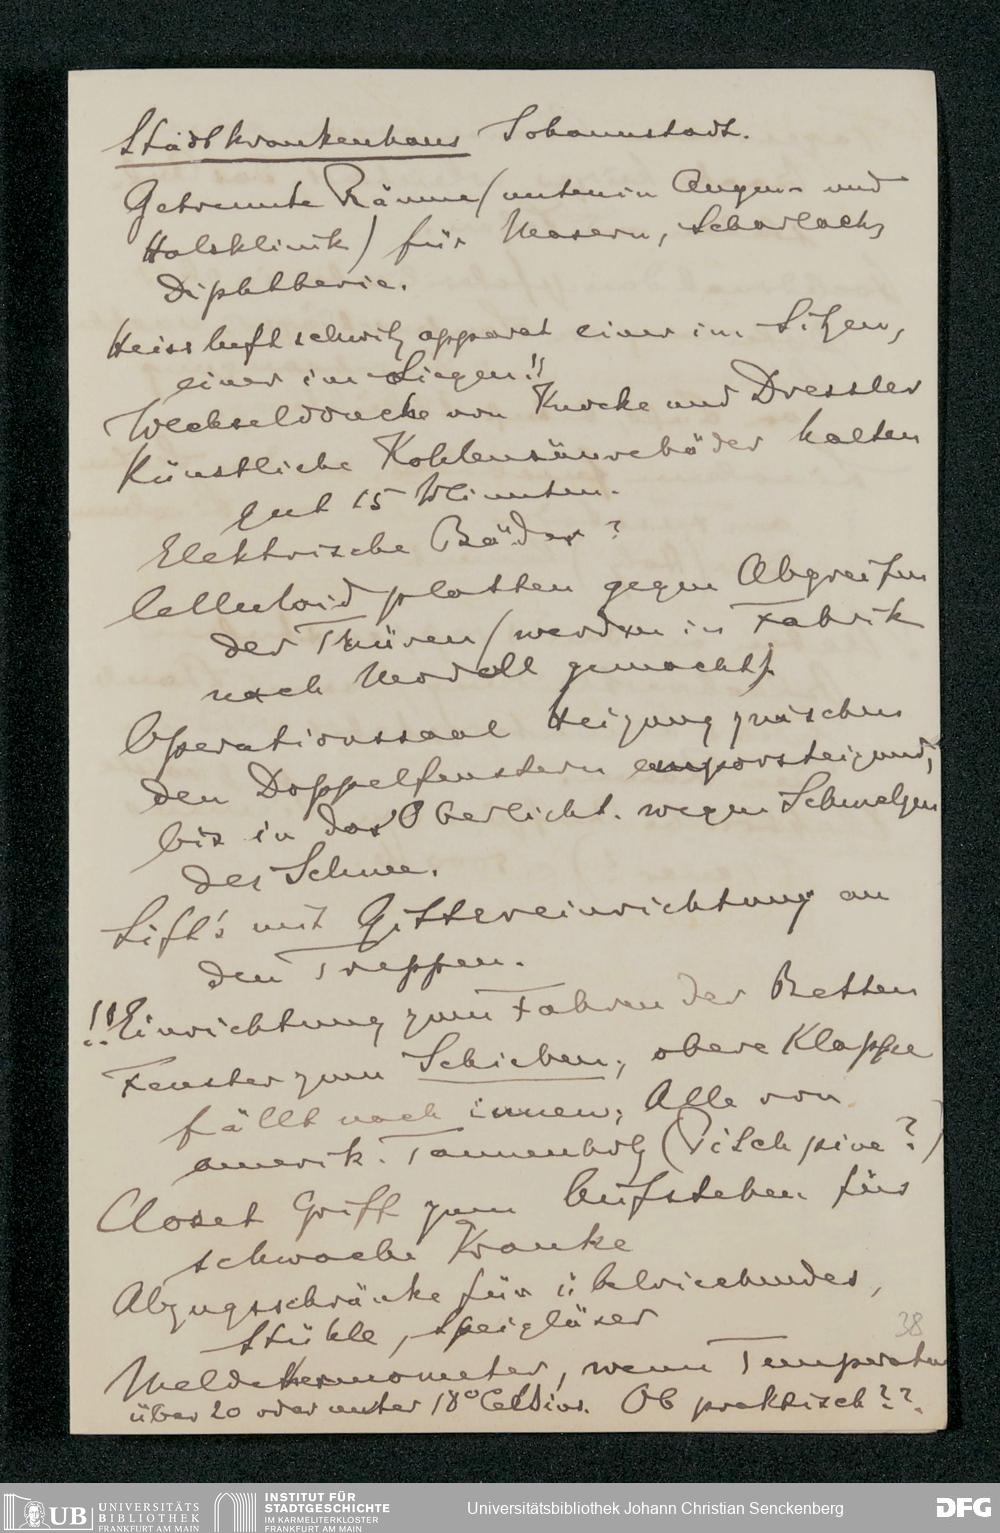 Stadtkrankenhaus Johannstadt.
Getrennte Räume (unten in Augen- und
Halsklinik) für Masern, Scharlach,
Diphtherie.
Heissluftschwitzapparat einer im Sitzen,
einer im Liegen!!
Wechseldouche von Knocke und Dressler
Künstliche Kohlensäurebäder halten
gut 15 Minuten.
Elektrische Bäder?
Celluloidplatten gegen Abgreifen
der Thüren (werden in Fabrik
nach Modell gemacht).
Operationssaal Heizung zwischen
den Doppelfenstern emporsteigend,
bis in das Oberlicht. wegen Schmelzen
des Schnee.
Lift's mit Gittereinrichtung an
den Treppen.
!!! Einrichtung zum Fahren der Betten
Fenster zum Schieben, obere Klappe
fällt nach innen; Alle von
amerik. Tannenholz (Pitschpine?)
Closet Griff zum Aufstehen für
schwache Kranke
Abzugsschränke für übelriechendes,
Stühle, Speigläser
Meldethermometer, wenn Temperatur
über 20 oder unter 18° Celsius. Ob praktisch??.
38
UB UNIVERSITÄTS
BIBLIOTHEK
FRANKFURT AM MAIN
INSTITUT FÜR
STADTGESCHICHTE
IM KARMELITERKLOSTER
FRANKFURT AM MAIN
Universitätsbibliothek Johann Christian Senckenberg
DFG